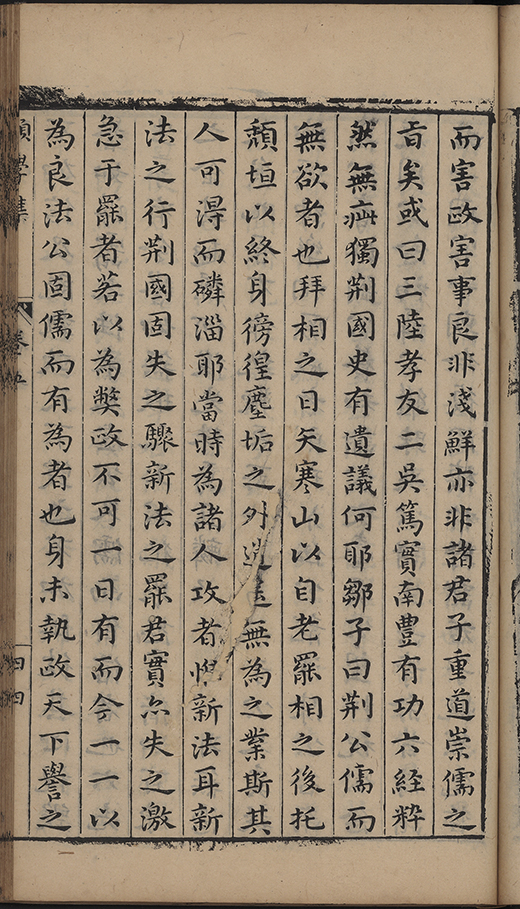 而害政害事良非淺鮮亦非諸君子重道崇儒之
㫖矣或曰三陸孝友二吳篤實南豊有功六經粹
然無疵獨荆國史有遺議何耶鄒子曰荆公儒而
無欲者也拜相之日矢寒山以自老罷相之後托
頹垣以終身徬徨塵垢之外逍遙無為之業斯其
人可淂而磷淄耶當時為諸人攻者惟新法耳新
法之行荆國固失之驟新法之罷君實亦失之激
急于罷者若以為獘政不可一日有而今一一以
為良法公固儒而有為者也身未執政天下譽之
願學集
卷五
四四